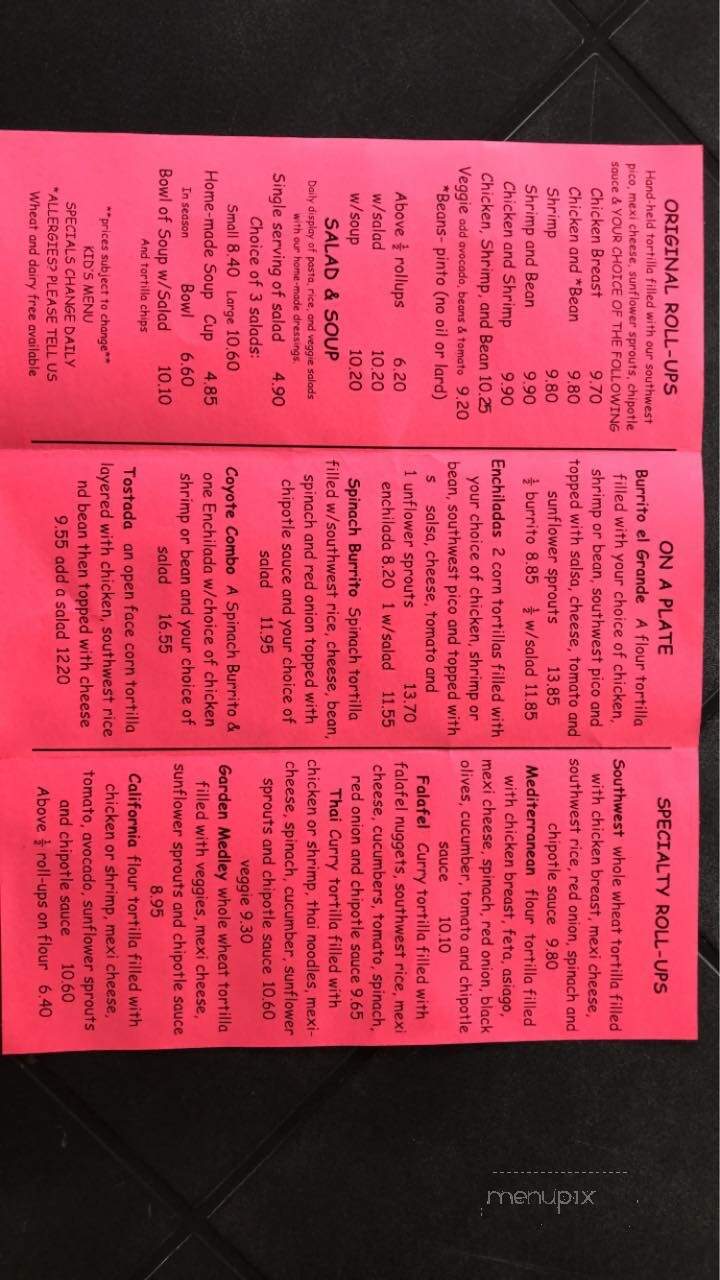 ORIGINAL ROLL-UPS
Hand-held tortilla filled with our southwest
pico, mexi cheese, sunflower sprouts, chipotle
sauce & YOUR CHOICE OF THE FOLLOWING
Chicken Breast 9.70
Chicken and *Bean 9.80
Shrimp 9.80
Shrimp and Bean 9.90
Chicken and Shrimp 9.90
Chicken, Shrimp, and Bean 10.25
Veggie add avocado, beans & tomato 9.20
*Beans- pinto (no oil or lard)
Above ½ rollups 6.20
w/salad 10.20
w/soup 10.20
SALAD & SOUP
Daily display of pasta, rice and veggie salads
with our home-made dressings.
Single serving of salad 4.90
Choice of 3 salads:
Small 8.40 Large 10.60
Home-made Soup Cup 4.85
In season Bowl 6.60
Bowl of Soup w/Salad 10.10
And tortilla chips
**prices subject to change**
KID'S MENU
SPECIALS CHANGE DAILY
*ALLERGIES? PLEASE TELL US
Wheat and dairy free available
ON A PLATE
Burrito el Grande A flour tortilla
filled with your choice of chicken,
shrimp or bean, southwest pico and
topped with salsa, cheese, tomato and
sunflower sprouts 13.85
½ burrito 8.85 ½ w/salad 11.85
Enchiladas 2 corn tortillas filled with
your choice of chicken, shrimp or
bean, southwest pico and topped with
s salsa, cheese, tomato and
1 unflower sprouts 13.70
enchilada 8.20 1 w/salad 11.55
Spinach Burrito Spinach tortilla
filled w/southwest rice, cheese, bean,
spinach and red onion topped with
chipotle sauce and your choice of
salad 11.95
Coyote Combo A Spinach Burrito &
one Enchilada w/choice of chicken
shrimp or bean and your choice of
salad 16.55
Tostada an open face corn tortilla
layered with chicken, southwest rice
nd bean then topped with cheese
9.55 add a salad 12.20
SPECIALTY ROLL-UPS
Southwest whole wheat tortilla filled
with chicken breast, mexi cheese,
southwest rice, red onion, spinach and
chipotle sauce 9.80
Mediterranean flour tortilla filled
with chicken breast, feta, asiago,
mexi cheese, spinach, red onion, black
olives, cucumber, tomato and chipotle
sauce 10.10
Falafel Curry tortilla filled with
falafel nuggets, southwest rice, mexi
cheese, cucumbers, tomato, spinach,
red onion and chipotle sauce 9.65
Thai Curry tortilla filled with
chicken or shrimp, thai noodles, mexi-
cheese, spinach, cucumber, sunflower
sprouts and chipotle sauce 10.60
veggie 9.30
Garden Medley whole wheat tortilla
filled with veggies, mexi cheese,
sunflower sprouts and chipotle sauce
8.95
California flour tortilla filled with
chicken or shrimp, mexi cheese,
tomato, avocado, sunflower sprouts
and chipotle sauce 10.60
Above ½ roll-ups on flour 6.40
menupix